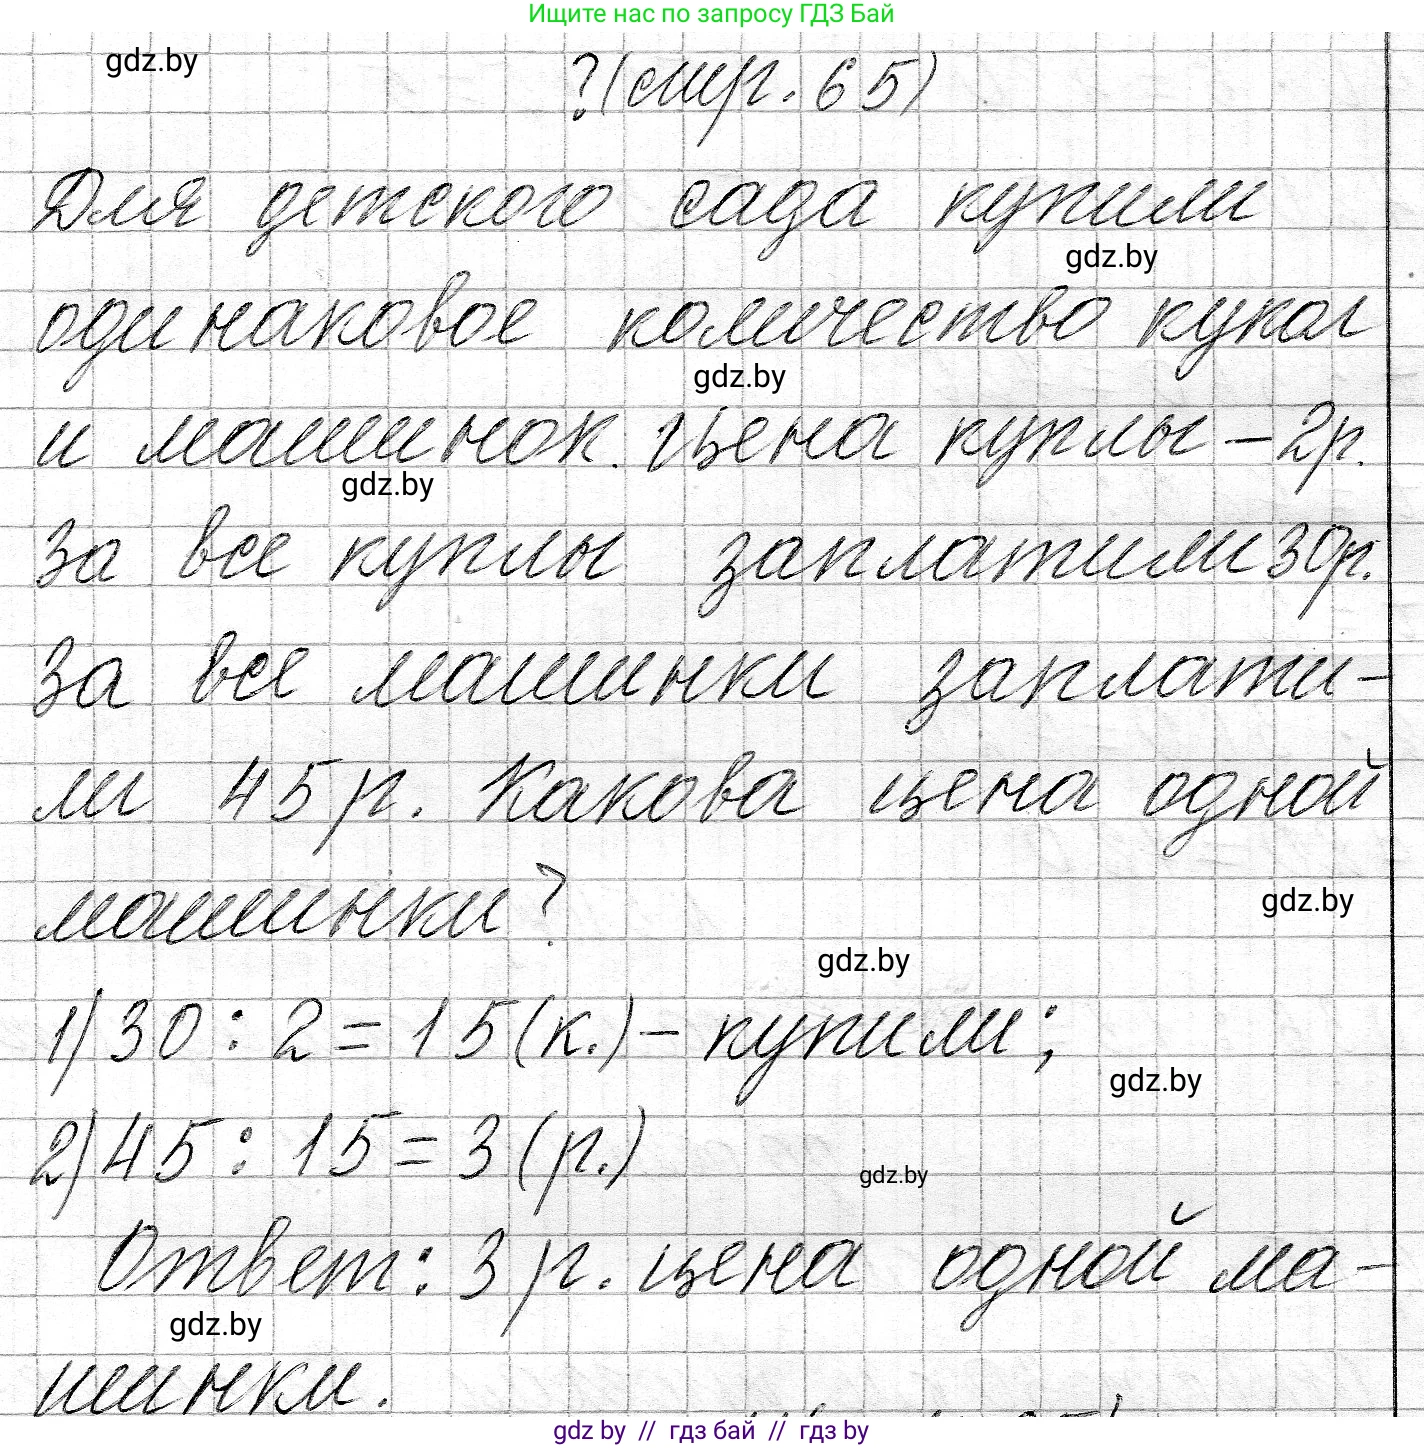 Ищите нас по запросу ГДЗ Бай
gdz.by
?(стр. 65)
Для детского сада купили
gdz.by
одинаковое количество кукол
gdz.by
и машинок. Цена куклы – 2р.
gdz.by
За все куклы заплатили 30р.
За все машинки заплати-
ли 45 р. Какова цена одной
машинки?
gdz.by
gdz.by
1) 30 : 2 = 15 (к.) – купили;
gdz.by
2) 45 : 15 = 3 (р.)
gdz.by
Ответ: 3 р. цена одной ма-
gdz.by
шинки.
gdz by // гдз бай // гдз by